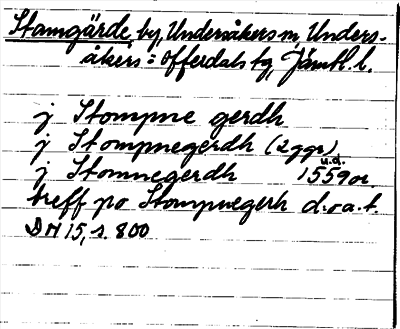 Stamgärde by, Undersåkers sn, Unders-
åkers o Offerdals tg, Jämtl. l.
j Stompne gerdh
j Stompnegerdh (2 ggr)
u.d.
j Stomnegerdh 1559 or.
treff po Stompnegerh d:o a. t.
DN 15, s. 800